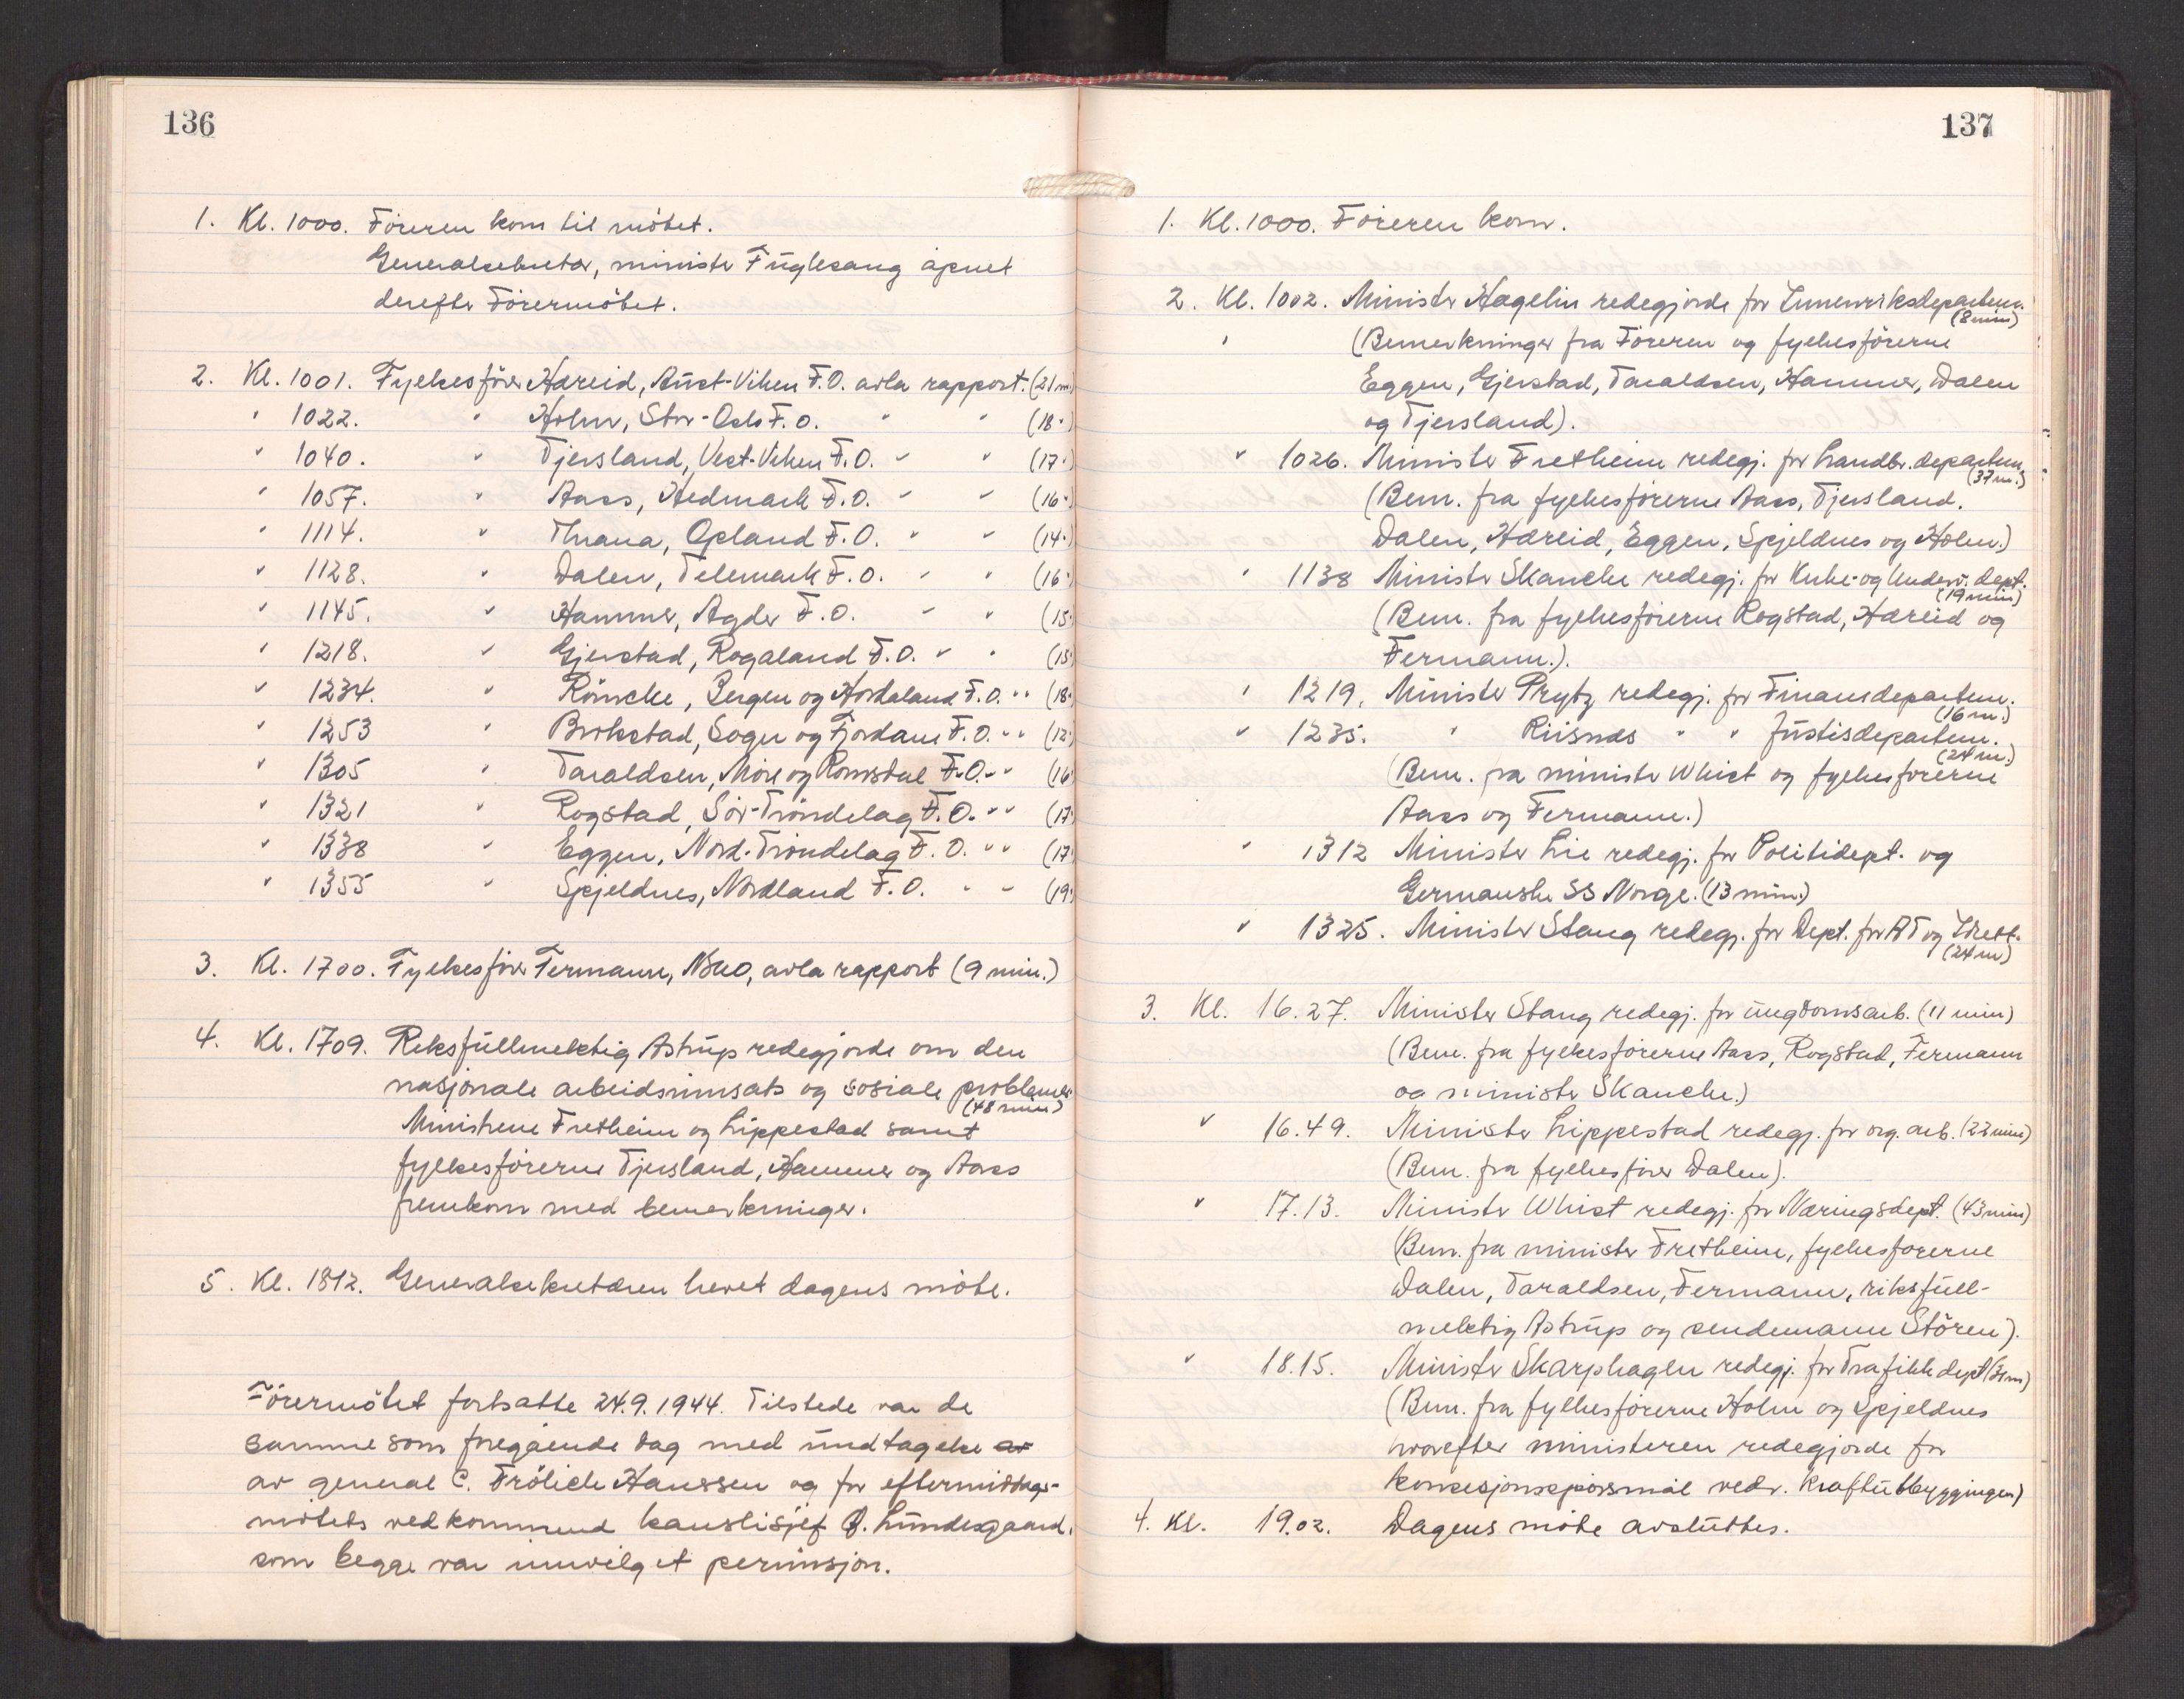 136
1. Kl. 1000. Föreren kom til mötet.
Generalsekretær, minister Fuglesang åpnet
derefter Förermötet.
2. Kl. 1001. Fylkesförer Hæreid, Aust-Viken F.O. avla rapport. (21 m)
" 1022. " Holm, Stor-Oslo F.O. " " (18")
" 1040. " Tjersland, Vest-Viken F.O. " " (17")
" 1057. " Aass, Hedmark F.O. " " (16")
" 1114. " Thrana, Opland F.O. " " (14")
" 1128. " Dalen, Telemark F.O. " " (16")
" 1145. " Hammer, Agder F.O. " " (15
" 1218. " Gjerstad, Rogaland F.O. " " (15
" 1234. " Röncke, Bergen og Hordaland F.O. " " (18
" 1253 " Brokstad, Sogn og Fjordane F.O. " " (12
" 1305 " Taraldsen, Möre og Romsdal F.O. " " (16
" 1321 " Rogstad, Sör-Tröndelag F.O. " " (17
" 1338 " Eggen, Nord-Tröndelag F.O. " " (17
" 1355 " Spjeldnes, Nordland F.O. " " (19
3. Kl. 1700. Fylkesförer Fermann, NSUO, avla rapport (9 min.)
4. Kl. 1709. Riksfullmektig Astrup redegjorde om den
nasjonale arbeidsinnsats og sosiale problemer
(48 min)
Ministrene Fretheim og Lippestad samt
fylkesförerne Tjersland, Hammer og Aass
fremkom med bemerkninger.
5. Kl. 1812. Generalsekretæren hevet dagens möte.
Förermötet fortsatte 24.9.1944. Tilstede var de
samme som foregående dag med undtagelse av
av general C. Frölich Hanssen og for eftermiddags-
mötets vedkommend kanslisjef O. Lundesgaard,
som begge var innvilget permisjon.
137
1. Kl. 1000. Föreren kom.
2. Kl. 1002. Minister Hagelin redegjorde for Innenriksdepartem.
(8 min)
(Bemerkninger fra Föreren og fylkesförerne
Eggen, Gjerstad, Taraldsen, Hammer, Dalen
og Tjersland).
" 1026. Minister Fretheim redegj. for Landbr.departem.
(37 m.)
(Bem. fra fylkesförerne Aass, Tjersland.
Dalen, Hæreid, Eggen, Spjeldnes og Holm.)
" 1138 Minister Skancke redegj. for Kirke- og Underv. dept.
(19 min)
(Bem. fra fylkesförerne Rogstad, Hæreid og
Fermann.).
" 1219. Minister Prytz redegj. for Finansdepartem.
(16 m.)
" 1235. " Riisnæs " " Justisdepartem.
(24 m.)
(Bem. fra minister Whist og fylkesförerne
Aass og Fermann.)
" 1312 Minister Lie redegj. for Politidept. og
Germanske SS Norge. (13 min.)
" 1325. Minister Stang redegj. for Dept. for AT og Idrett.
(24 m)
3. Kl. 16.27. Minister Stang redegj. for ungdomsarb. (11 min)
(Bem. fra fylkesförerne Aass, Rogstad, Fermann
og minister Skancke.)
" 16.49. Minister Lippestad redegj. for org. arb. (22 min)
(Bem. fra fylkesförer Dalen).
" 17.13. Minister Whist redegj. for Næringsdept. (43 min)
(Bem. fra minister Fretheim, fylkesförerne
Dalen, Taraldsen, Fermann, riksfull-
mektig Astrup og sendemann Stören).
" 18.15. Minister Skarphagen redegj. for Trafikkdept (31 m)
(Bem. fra fylkesförerne Holm og Spjeldnes
hvorefter ministeren redegjorde for
konsesjonsspörsmål vedr. kraftutbyggingen)
4. Kl. 19.02. Dagens möte avsluttes.